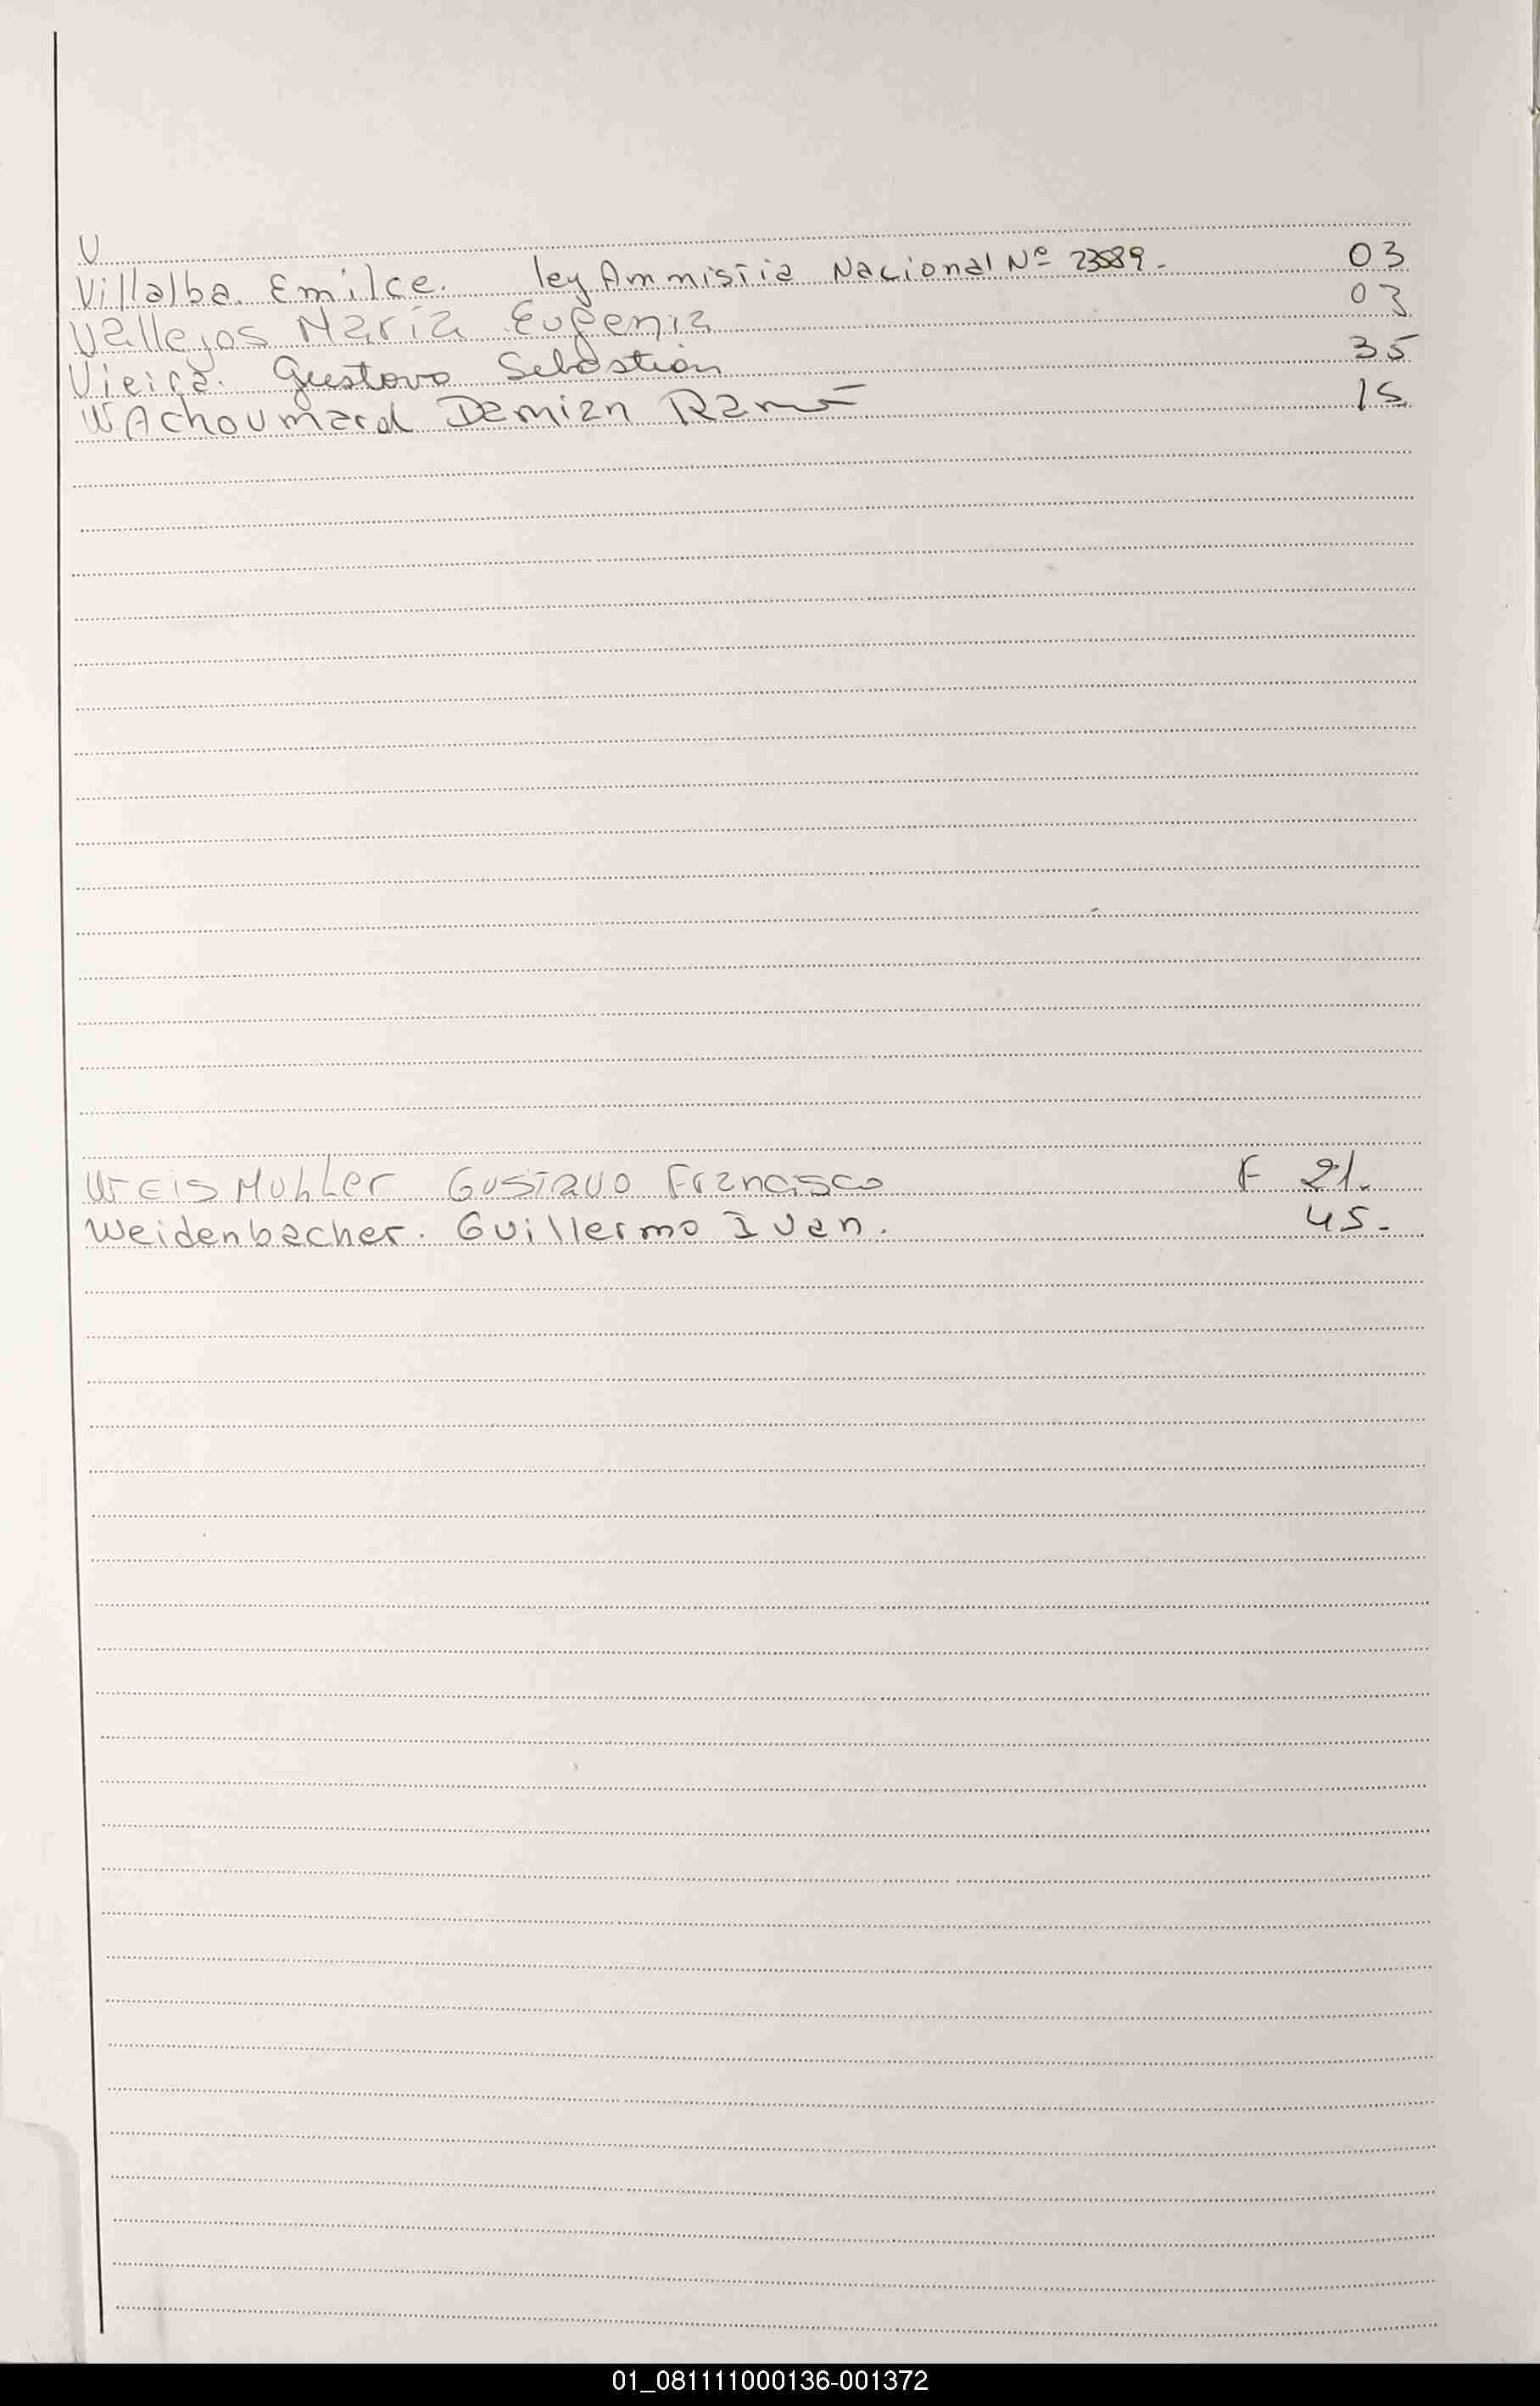 V
Villalba. Emilce. ley Ammistia Nacional Nº 23589.- 03
Vallejos María Eugenia 03
Vieira. Gustavo Sebastián 35
WAchoumard Demian 15
WeisMuhler Gustavo Francisco F 21.
Weidenbacher. Guillermo Ivan. 45.-
01_081111000136-001372